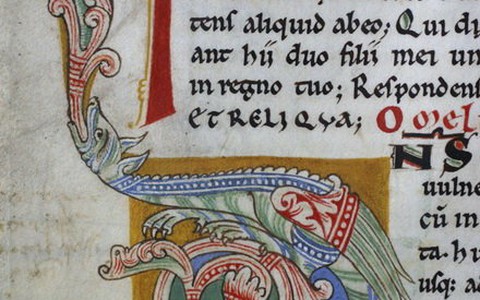 tens aliquid abeo; Qui dy
ant hij duo filij mei un
in regno tuo; Respondens
ET RELIQUA; Omel
NS
uulne
cū in
ta. h
usq: a